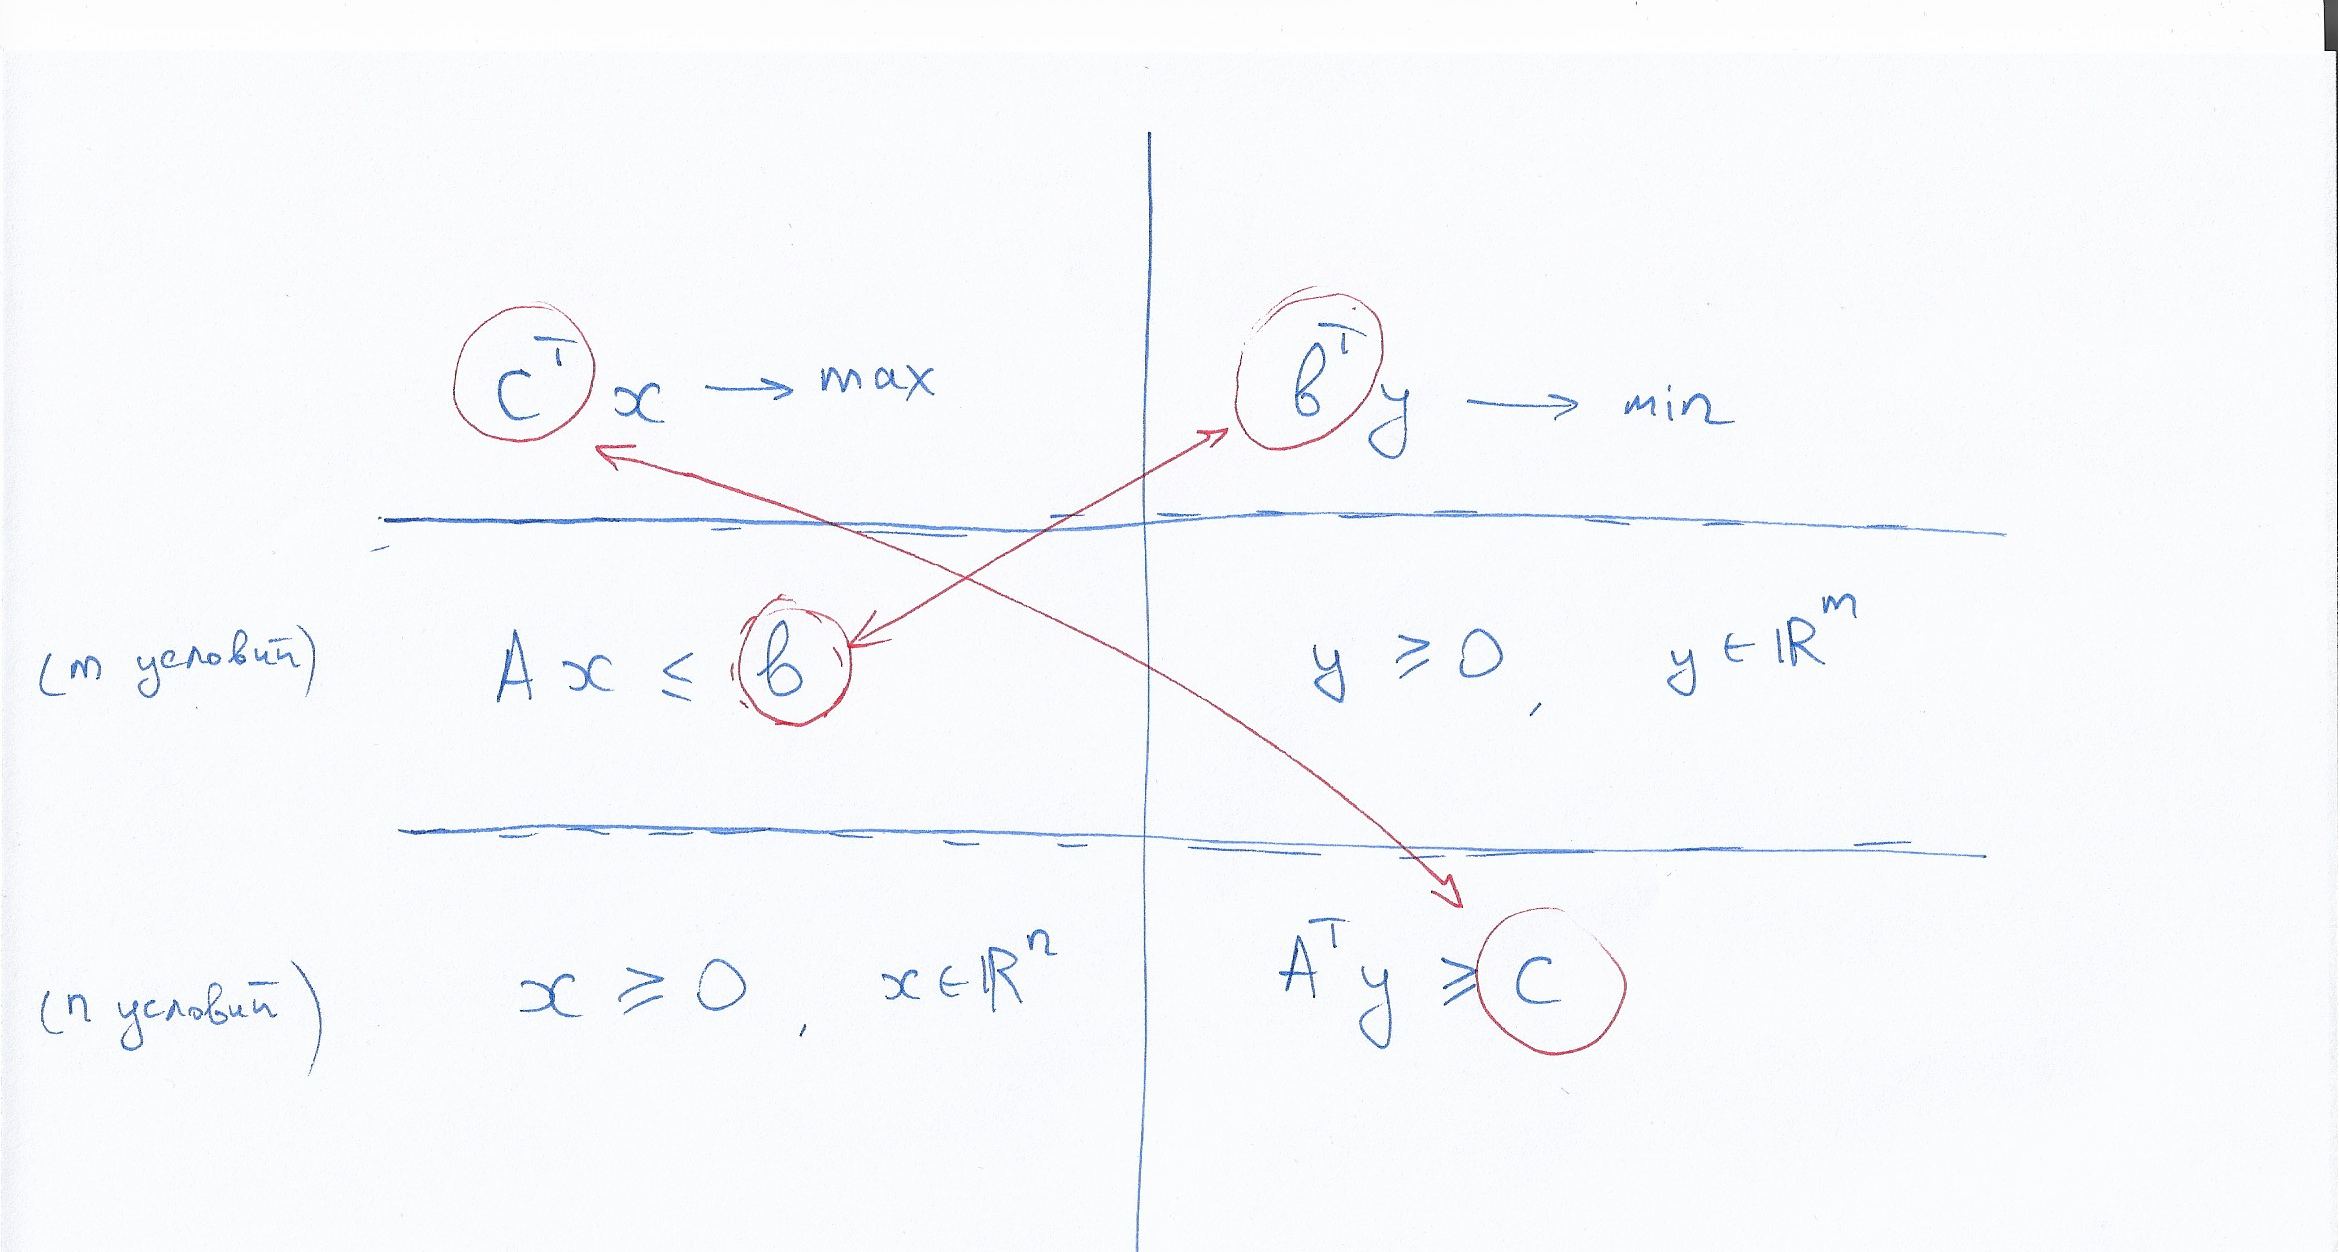 c^T x → max b^T y → min
(m условий) A x ≤ b y ≥ 0, y ∈ ℝ^m
(n условий) x ≥ 0, x ∈ ℝ^n A^T y ≥ c